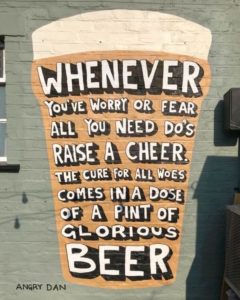 WHENEVER
YOU'VE WORRY OR FEAR
ALL YOU NEED DO'S
RAISE A CHEER.
THE CURE FOR ALL WOES
COMES IN A DOSE
OF A PINT OF
GLORIOUS
BEER
ANGRY DAN